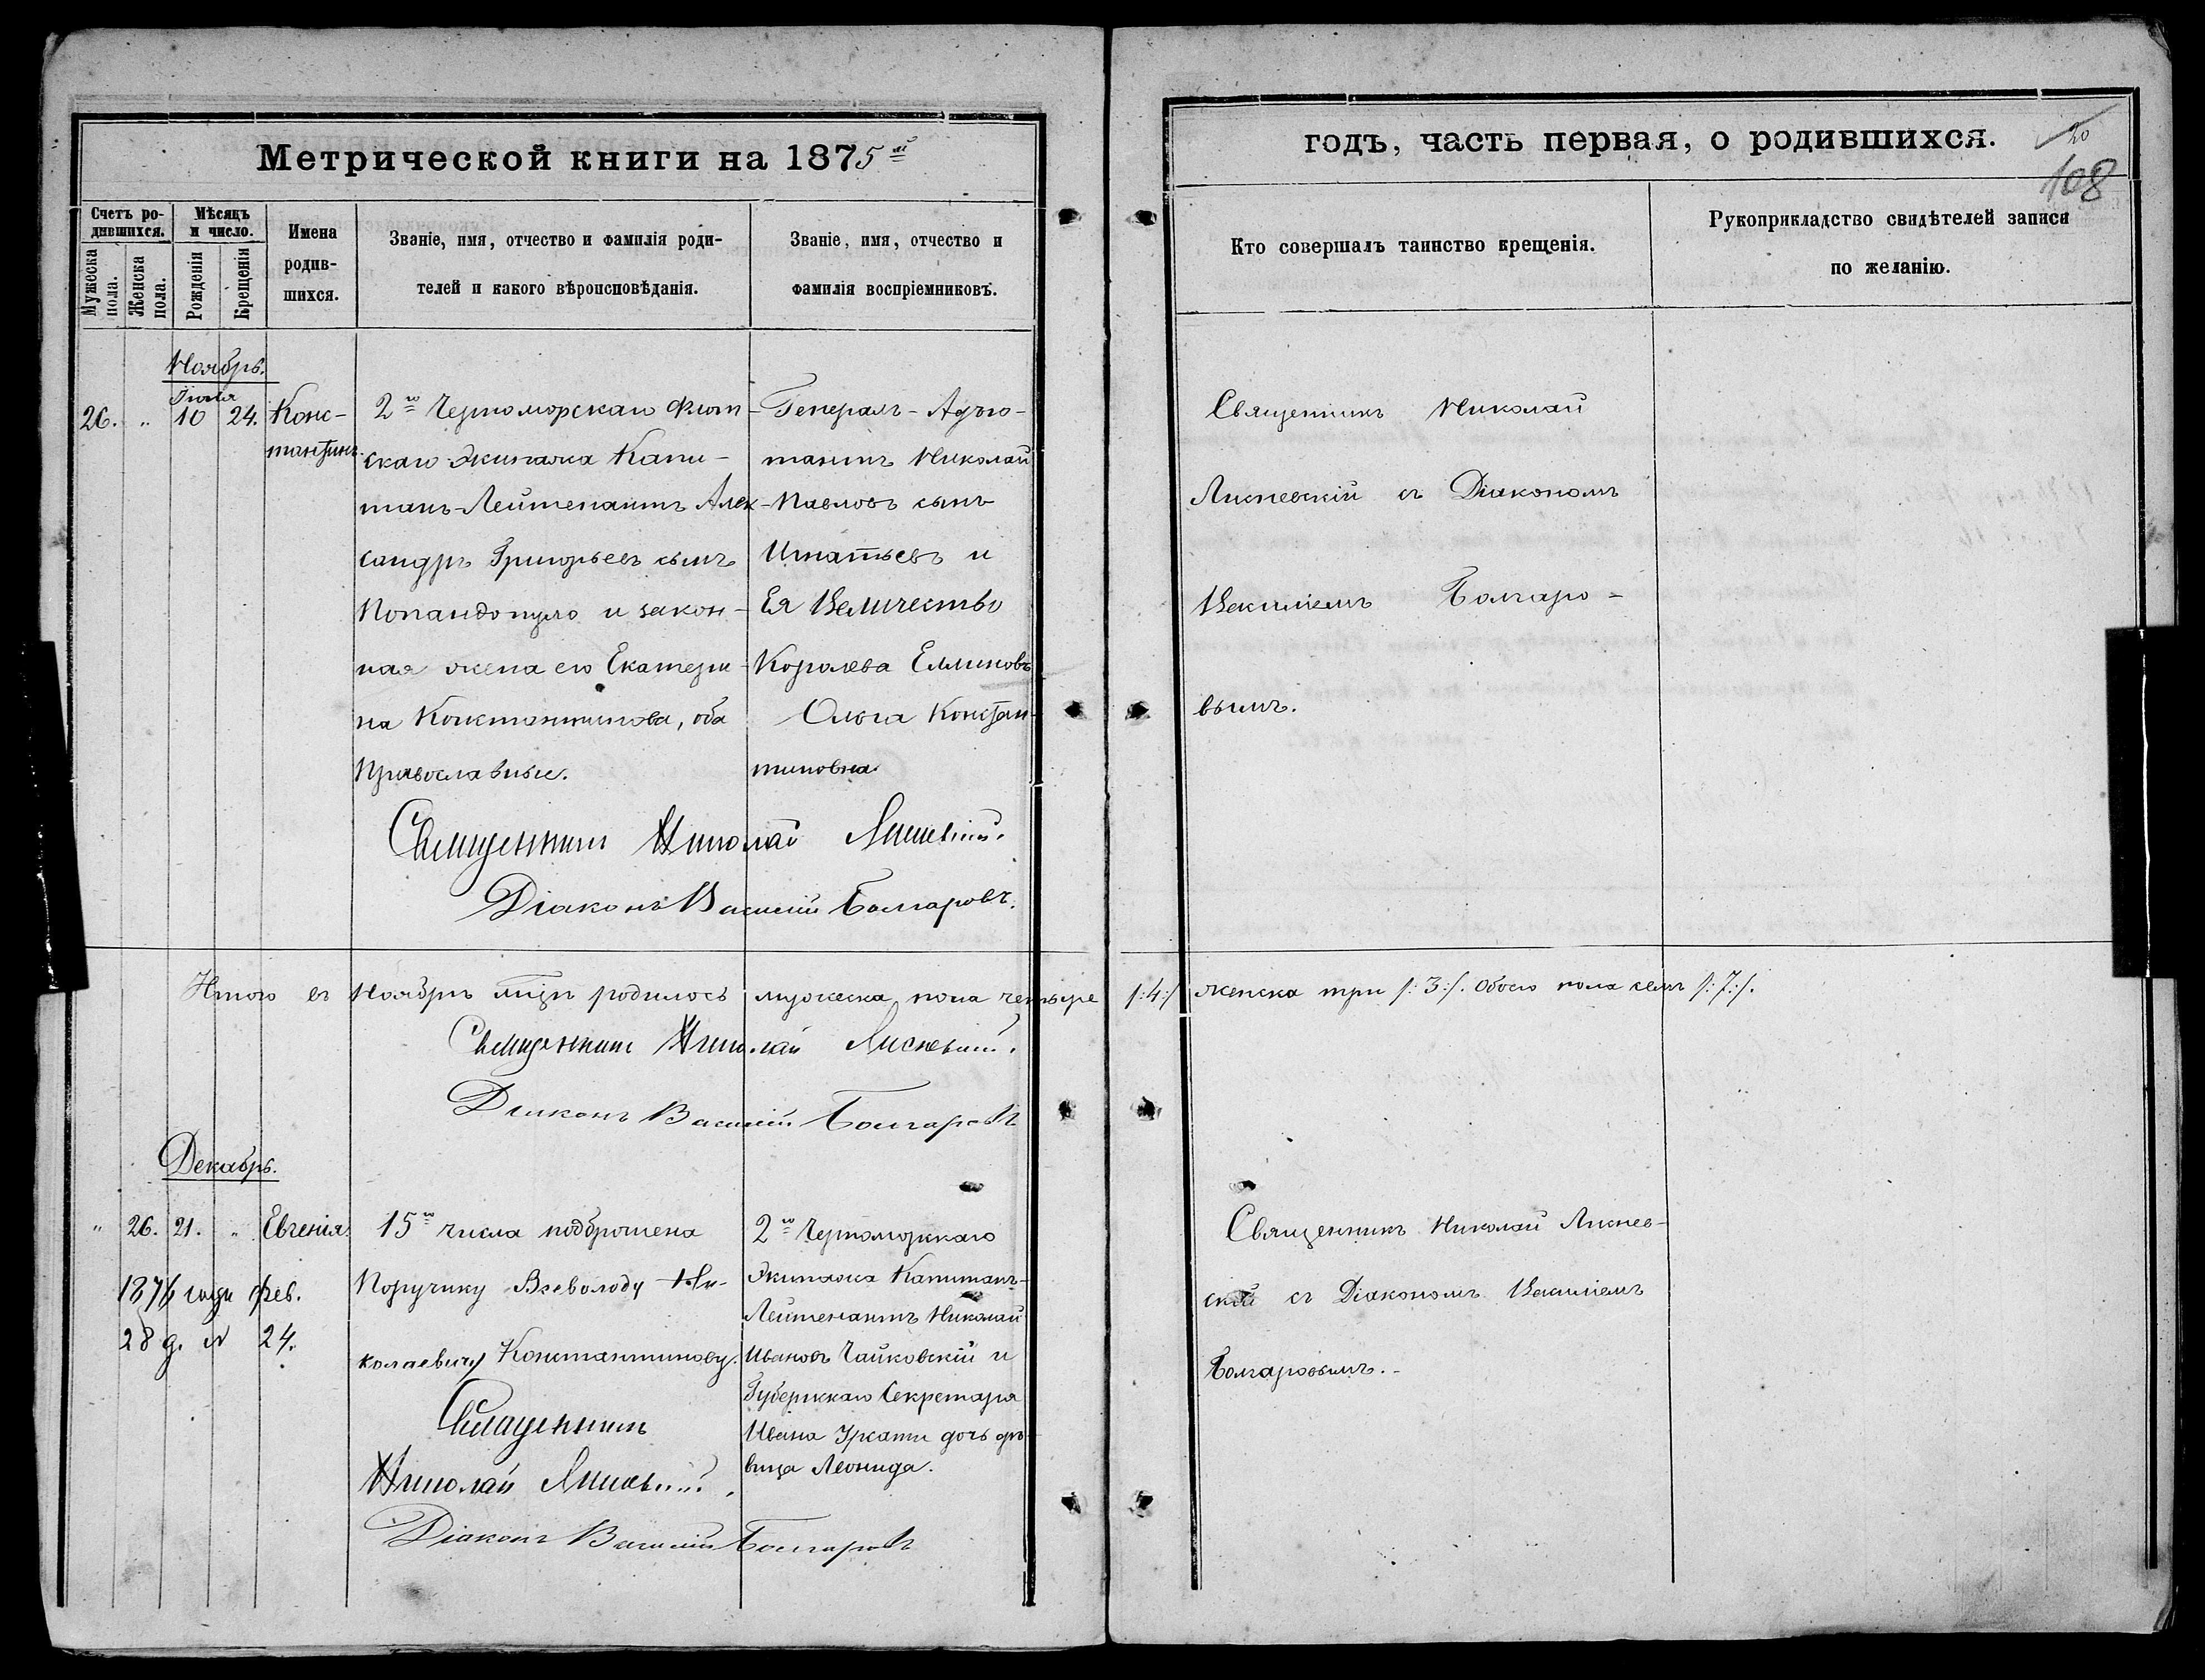 Метрической книги на 1875й
Счетъ родившихся.
Мужеска пола.
Женска пола.
Мѣсяцъ и число.
Рожденія
Крещенія
Имена родив-
шихся.
Званіе, имя, отчество и фамилія роди-
телей и какого вѣроисповѣданія.
Званіе, имя, отчество и
фамилія воспріемниковъ.
Ноябрь.
26. „ 10 24. Конс-
тантинъ.
2го Черноморскаго Флот-
скаго Экипажа Капи-
танъ-Лейтенантъ Алек-
сандръ Григорьевъ сынъ
Попандопуло и закон-
ная жена его Екатери-
на Константинова, оба
Православные.
Генералъ-Адъю-
тантъ Николай
Павловъ сынъ
Игнатьевъ и
Ея Величество
Королева Еллиновъ
Ольга Констан-
тиновна.
Священникъ Николай Лисневскій.
Діаконъ Василій Болгаровъ.
Итого въ Ноябрѣ мцѣ родилось мужеска пола четыре
Священникъ Николай Лисневскій.
Діаконъ Василій Болгаровъ
Декабрь.
„ 26. 21. „ Евгенія.
1876 года фев.
28 д. 24.
15го числа подброшена
Поручику Всеволоду Ни-
колаевичу Константинову.
2го Черноморскаго
Экипажа Капитанъ-
Лейтенантъ Николай
Ивановъ Чайковскій и
Губернскаго Секретаря
Ивана Уркати дочь дѣ-
вица Леонида.
Священникъ
Николай Лисневскій.
Діаконъ Василій Болгаровъ
годъ, часть первая, о родившихся.
20
108
Кто совершалъ таинство крещенія.
Рукоприкладство свидѣтелей записи
по желанію.
Священникъ Николай
Лисневскій съ Діакономъ
Василіемъ Болгаро-
вымъ.
/:4:/ женска три /:3:/. Обоего пола семь /:7:/.
Священникъ Николай Лиснев-
скій съ Діакономъ Василіемъ
Болгаровымъ.-